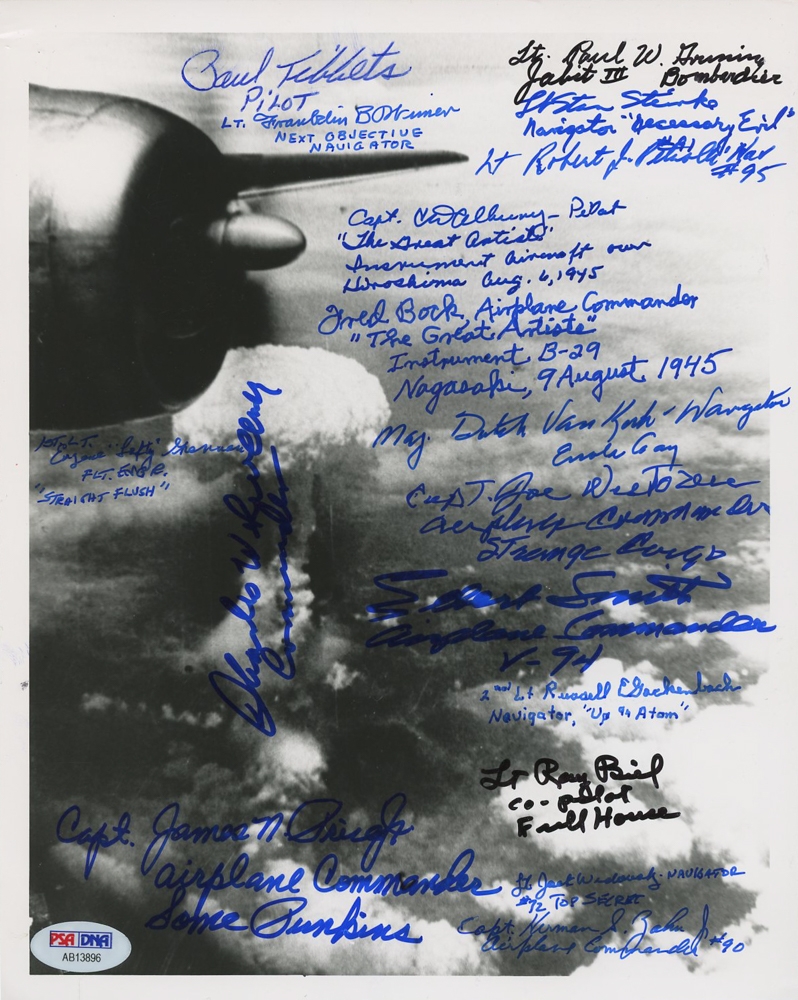 Paul Tibbets
PILOT
LT. Franklin B Wimer
NEXT OBJECTIVE
NAVIGATOR
Lt. Paul W. Gruning
Jabit III Bombardier
Lt Stan Steinke
Navigator "Necessary Evil"
Lt Robert J. Petrolli Nav
#95
Capt. CD Albury - Pilot
"The Great Artiste"
Instrument aircraft over
Hiroshima Aug. 6, 1945
Fred Bock, Airplane Commander
"The Great Artiste"
Instrument B-29
Nagasaki, 9 August 1945
Maj. Dutch Van Kirk - Navigator
Enola Gay
1st LT.
Eugene "Lefty"
FLT. ENGR.
"STRAIGHT FLUSH"
Charles W Sweeney
Commander
Capt. Joe Westover
Airplane Commander
Strange Cargo
Elbert Smith
Airplane Commander
V-94
2nd Lt Russell E Gackenbach
Navigator,
Lt Ray Biel
co-pilot
Full House
Capt. James N. Price Jr
airplane Commander
Some Punkins
Lt Jack Widowsky - NAVIGATOR
#72 TOP SECRET
Capt. Herman S. Zahn Jr
Airplane Commander #90
PSA DNA
AB13896